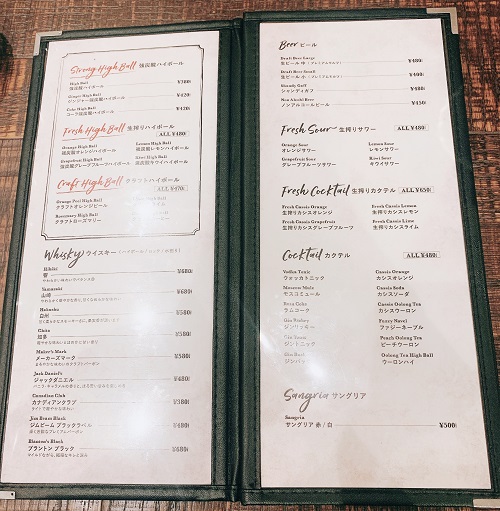 Strong High Ball 強炭酸ハイボール
High Ball
強炭酸ハイボール ¥380
Ginger High Ball
ジンジャー強炭酸ハイボール ¥420
Coke High Ball
コーラ強炭酸ハイボール ¥420
Fresh High Ball 生搾りハイボール ALL ¥480
Orange High Ball
強炭酸オレンジハイボール
Lemon High Ball
強炭酸レモンハイボール
Grapefruit High Ball
強炭酸グレープフルーツハイボール
Kiwi High Ball
強炭酸キウイハイボール
Craft High Ball クラフトハイボール ALL ¥470
Orange Peel High Ball
クラフトオレンジピール
Rosemary High Ball
クラフトローズマリー
Whisky ウイスキー
Hibiki
響 ¥680
Yamazaki
山崎 ¥680
Hakushu
白州 ¥580
Chita
知多 ¥580
Maker's Mark
メーカーズマーク ¥580
Jack Daniel's
ジャックダニエル ¥480
Canadian Club
カナディアンクラブ ¥380
Jim Beam Black
ジムビーム ブラックラベル ¥480
Blanton's Black
ブラントン ブラック ¥680
Beer ビール
Draft Beer Large
生ビール 中 (プレミアムモルツ) ¥480
Draft Beer Small
生ビール 小 (プレミアムモルツ) ¥400
Shandy Gaff
シャンディガフ ¥480
Non Alcohol Beer
ノンアルコールビール ¥450
Fresh Sour 生搾りサワー ALL ¥480
Orange Sour
オレンジサワー
Lemon Sour
レモンサワー
Grapefruit Sour
グレープフルーツサワー
Kiwi Sour
キウイサワー
Fresh Cocktail 生搾りカクテル ALL ¥650
Fresh Cassis Orange
生搾りカシスオレンジ
Fresh Cassis Lemon
生搾りカシスレモン
Fresh Cassis Grapefruit
生搾りカシスグレープフルーツ
Fresh Cassis Lime
生搾りカシスライム
Cocktail カクテル ALL ¥480
Vodka Tonic
ウォッカトニック
Cassis Orange
カシスオレンジ
Moscow Mule
モスコミュール
Cassis Soda
カシスソーダ
Rum Coke
ラムコーク
Cassis Oolong Tea
カシスウーロン
Gin Rickey
ジンリッキー
Fuzzy Navel
ファジーネーブル
Gin Tonic
ジントニック
Peach Oolong Tea
ピーチウーロン
Gin Buck
ジンバック
Oolong Tea High Ball
ウーロンハイ
Sangria サングリア
Sangria
サングリア 赤 / 白 ¥500